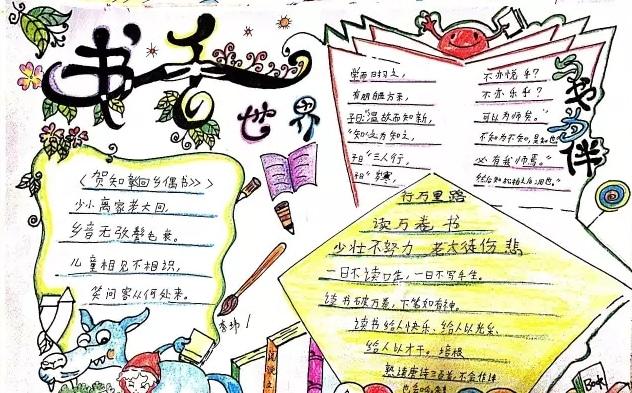 书香
世界
《贺知章回乡偶书》
少小离家老大回,
乡音无改鬓毛衰。
儿童相见不相识,
笑问客从何处来。
与书为伴
学而时习之, 不亦悦乎?
有朋自远方来, 不亦乐乎?
子曰:"温故而知新, 可以为师矣。"
"知之为知之, 不知为不知,是知也"
子曰"三人行, 必有我师焉。"
子曰" 岁寒,
行万里路
读万卷书
少壮不努力 老大徒伤悲
一日不读口生,一日不写手生。
读书破万卷,下笔如有神。
读书给人快乐、给人以光彩、
给人以才干。培根
熟读唐诗三百首,不会作诗
也会吟
Book